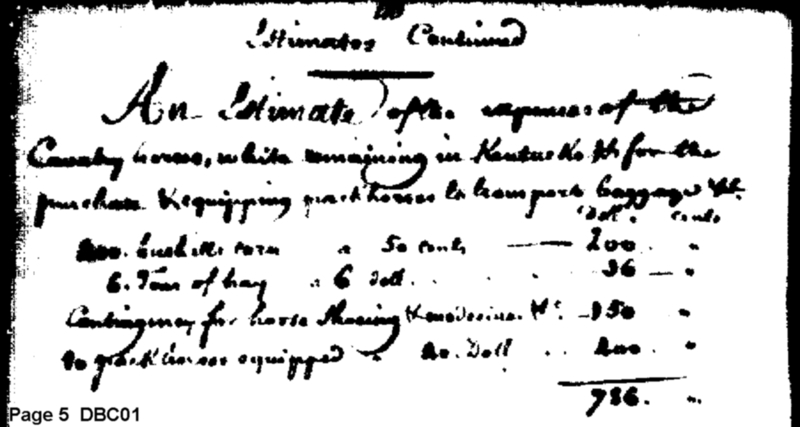 Estimates Continued
An Estimate of the expenses of the
Cavalry horses, while remaining in Kentucky & for the
purchase & equipping packhorses to transport baggage &c.
Doll. Cents
400. bushells corn a 50 cents — 200. "
6. Tons of hay a 6 doll. . . 36 — "
Contingency for horse Shoeing & medecine &c. — 150 "
packhorses equipped a 20. Doll . . 400. "
786. "
Page 5 DBC01